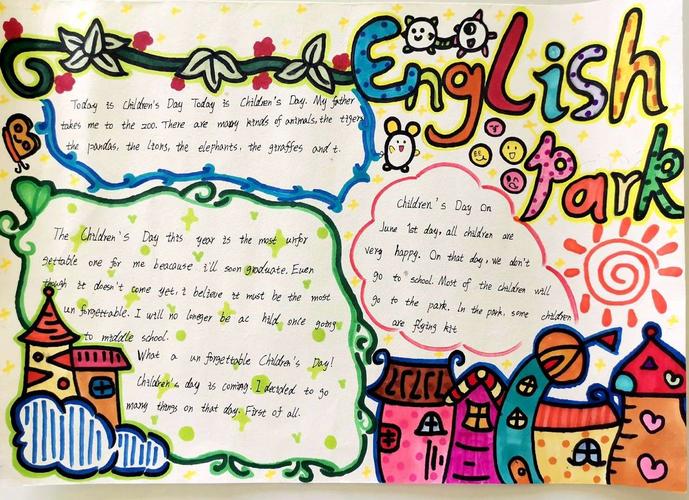 English
Park
Today is Children's Day Today is Children's Day. My father
takes me to the zoo. There are many kinds of animals, the tigers
the pandas, the lions, the elephants, the giraffes and t.
Children's Day On
June 1st day, all children are
very happy. On that day, we don't
go to school. Most of the children will
go to the park. In the park, some children
are flying kit
The Children's Day this year is the most unfor
gettable one for me beacause i'll soon graduate. Even
though it doesn't come yet, i believe it must be the most
un forgettable. I will no longer be ac hild once going
to middle school.
What a un forgettable Children's Day!
Children's day is coming. I decided to go
many things on that day. First of all.